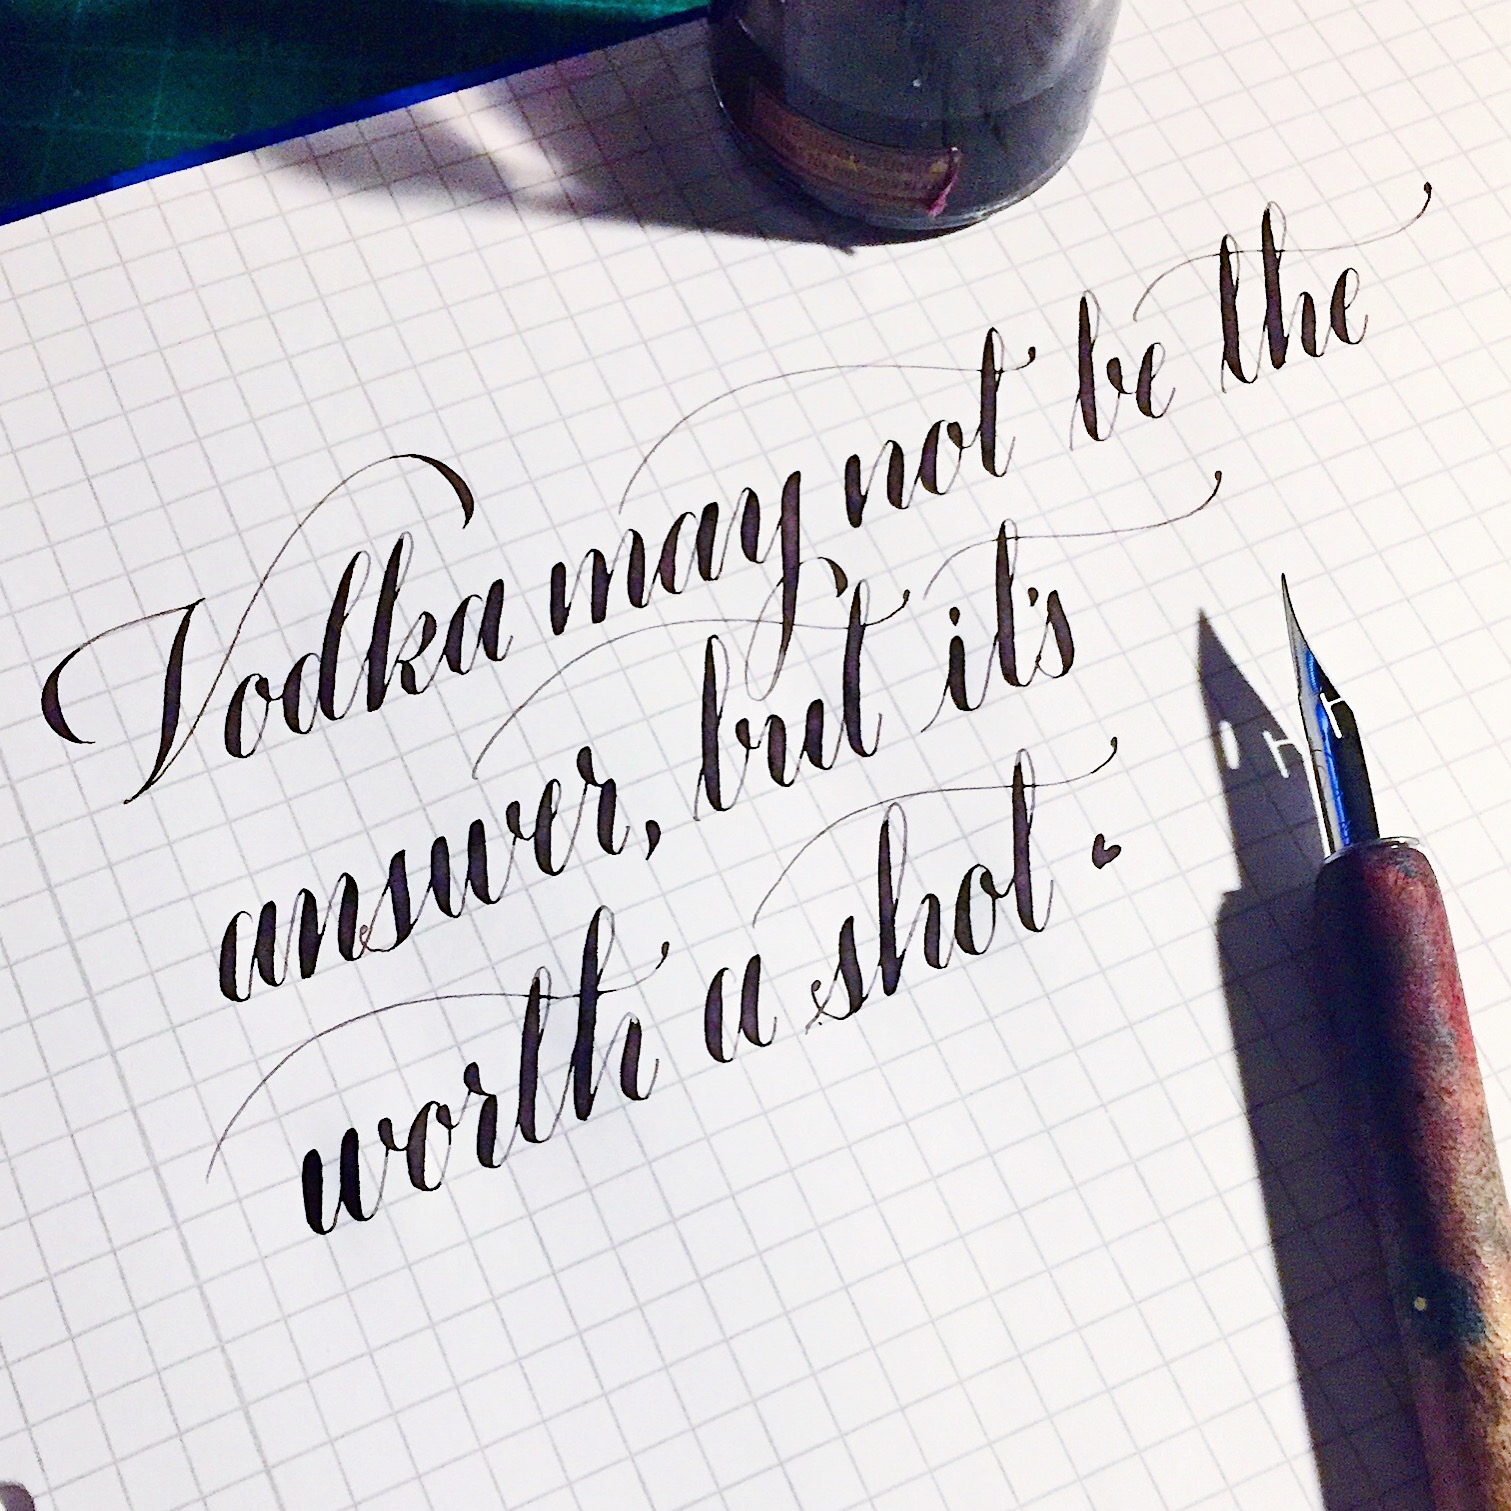 Vodka may not be the
answer, but it's
worth a shot